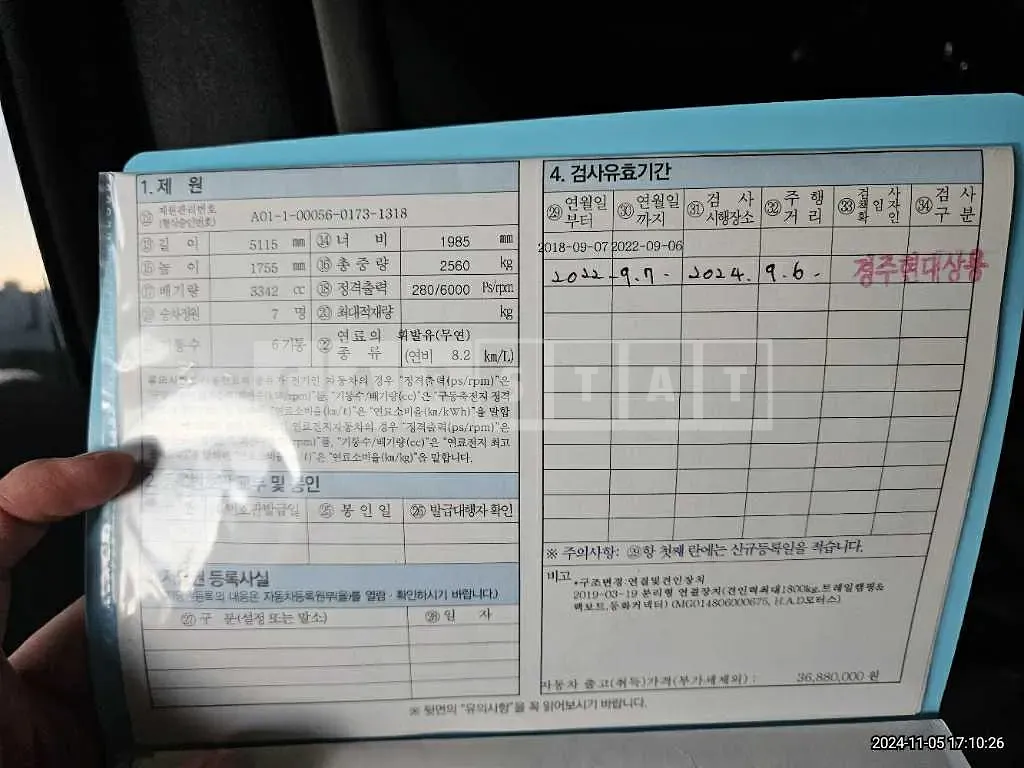 1. 제 원
⑫ 제원관리번호 (형식승인번호) A01-1-00056-0173-1318
⑬ 길 이 5115 mm ⑭ 너 비 1985 mm
⑮ 높 이 1755 mm ⑯ 총 중 량 2560 kg
⑰ 배기량 3342 cc ⑱ 정격출력 280/6000 Ps/rpm
승차정원 7 명 ⑳ 최대적재량 kg
기통수 6기통 ㉒ 연료의 종 류 휘발유(무연) (연비 8.2 km/L)
자동차의 경우 "정격출력(ps/rpm)"은
"기통수/배기량(cc)"은 "구동축전지 정격
"연료소비율(km/ℓ)"은 "연료소비율(km/kWh)"을 말합
연료전지자동차의 경우 "정격출력(ps/rpm)"은
"기통수/배기량(cc)"은 "연료전지 최고
은 "연료소비율(km/kg)"을 말합니다.
및 봉인
번호판발급일 ㉕ 봉 인 일 ㉖ 발급대행자확인
등록사실
등록의 내용은 자동차등록원부(을)를 열람ㆍ확인하시기 바랍니다.)
㉗ 구 분(설정 또는 말소) ㉘ 일 자
4. 검사유효기간
㉙ 연월일부터 ㉚ 연월일까지 ㉛ 검 사 시행장소 ㉜ 주 행 거 리 ㉝ 검 사 책 임 자 확 인 ㉞ 검 사 구 분
2018-09-07 2022-09-06
2022-9.7- 2024. 9.6- 경주현대상용
※ 주의사항: ㉙항 첫째 란에는 신규등록일을 적습니다.
비고
*구조변경:연결및견인장치
2019-03-19 분리형 연결장치(견인력최대1800kg,트레일캠핑&
백보트,등화커넥터) (MG014806000675, H.A.D모터스)
자동차 출고(취득)가격(부가세제외) : 36,880,000 원
※ 뒷면의 "유의사항"을 꼭 읽어보시기 바랍니다.
STAT
2024-11-05 17:10:26